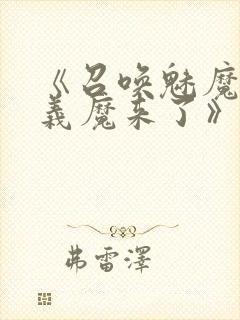 《召唤魅魔
義魔来了》
弗雷澤